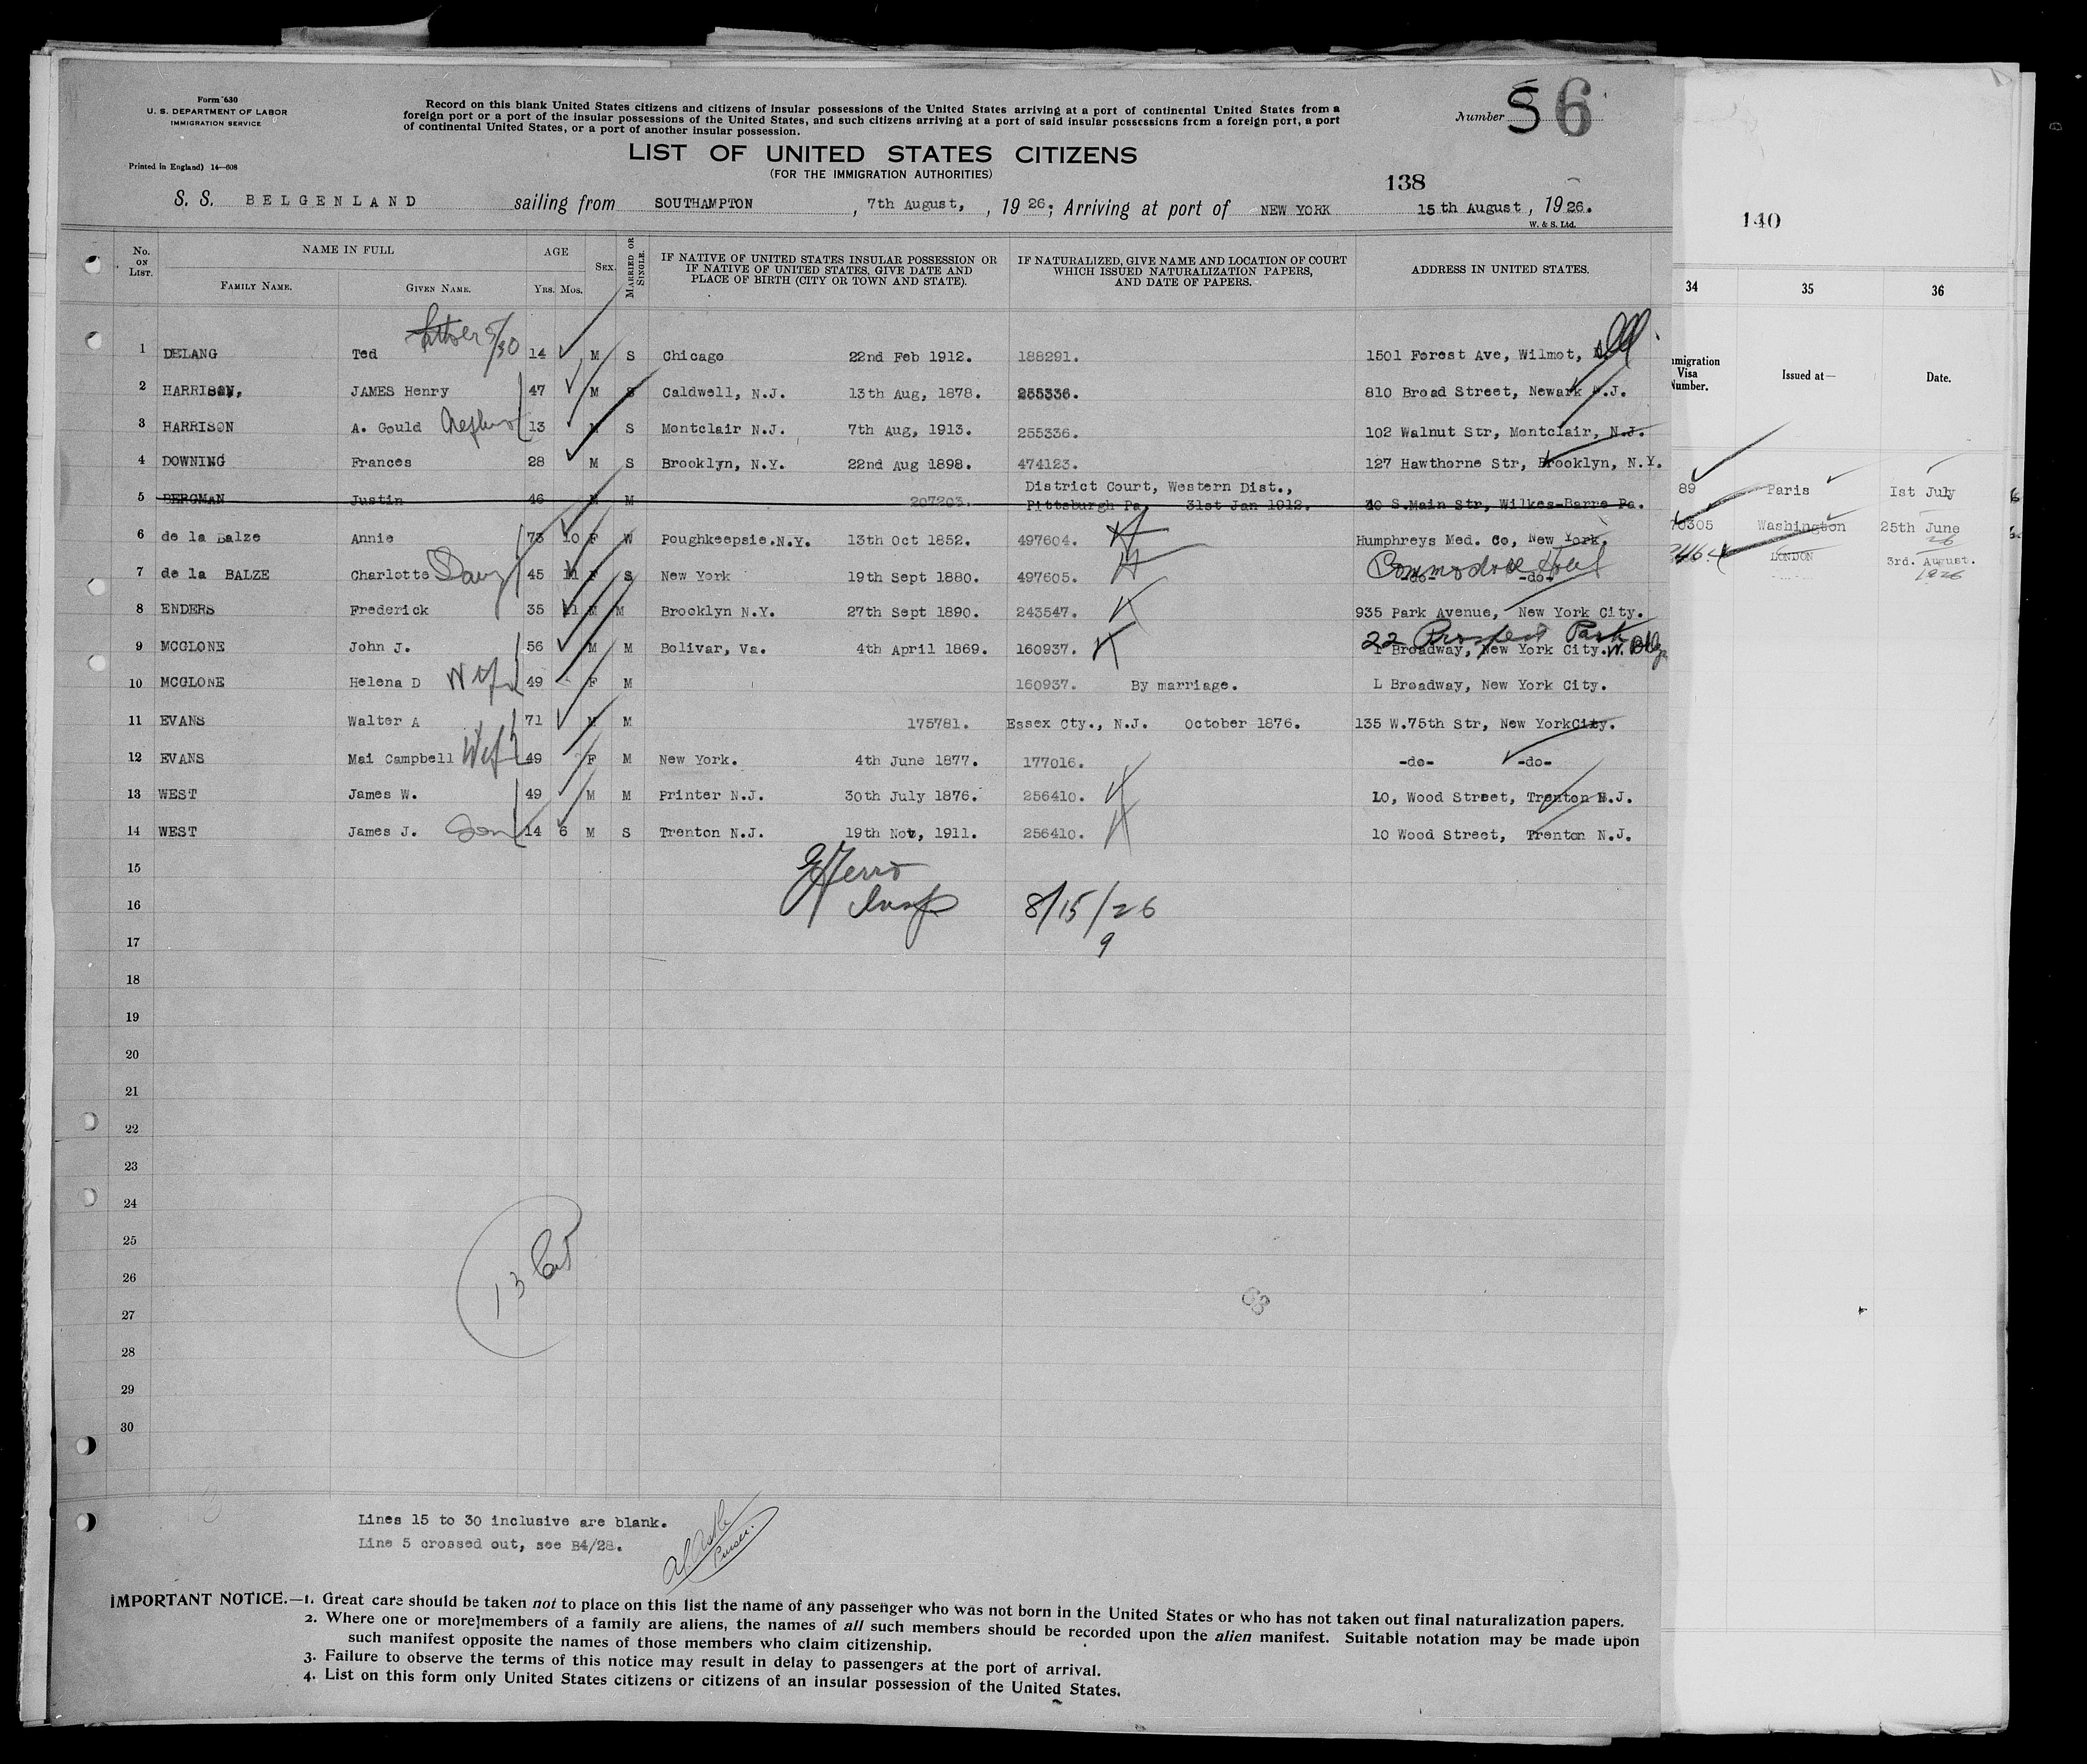 Form 630
U. S. DEPARTMENT OF LABOR
IMMIGRATION SERVICE
Printed in England) 14—608
Record on this blank United States citizens and citizens of insular possessions of the United States arriving at a port of continental United States from a
foreign port or a port of the insular possessions of the United States, and such citizens arriving at a port of said insular possessions from a foreign port, a port
of continental United States, or a port of another insular possession.
Number 5 6
LIST OF UNITED STATES CITIZENS
(FOR THE IMMIGRATION AUTHORITIES)
138
S. S. BELGENLAND sailing from SOUTHAMPTON , 7th August, , 19 26; Arriving at port of NEW YORK 15th August, 1926.
W. & S. Ltd.
140
No. ON LIST. NAME IN FULL FAMILY NAME. GIVEN NAME. AGE YRS. MOS. SEX. MARRIED OR SINGLE. IF NATIVE OF UNITED STATES INSULAR POSSESSION OR IF NATIVE OF UNITED STATES, GIVE DATE AND PLACE OF BIRTH (CITY OR TOWN AND STATE). IF NATURALIZED, GIVE NAME AND LOCATION OF COURT WHICH ISSUED NATURALIZATION PAPERS, AND DATE OF PAPERS. ADDRESS IN UNITED STATES.
34 35 36
Immigration Visa Number. Issued at— Date.
1 DELANG Ted 14 M S Chicago 22nd Feb 1912. 188291. 1501 Forest Ave, Wilmot,
2 HARRISON, JAMES Henry 47 M S Caldwell, N.J. 13th Aug, 1878. 255336. 810 Broad Street, Newark N.J.
3 HARRISON A. Gould Nephew 13 M S Montclair N.J. 7th Aug, 1913. 255336. 102 Walnut Str, Montclair, N.J.
4 DOWNING Frances 28 M S Brooklyn, N.Y. 22nd Aug 1898. 474123. 127 Hawthorne Str, Brooklyn, N.Y.
5 BERGMAN Justin 46 M M 207203. District Court, Western Dist., Pittsburgh Pa, 31st Jan 1912. 40 S.Main Str, Wilkes-Barre Pa.
6 de la Balze Annie 73 10 F W Poughkeepsie.N.Y. 13th Oct 1852. 497604. Humphreys Med. Co, New York.
7 de la BALZE Charlotte 45 11 F S New York 19th Sept 1880. 497605. Commodore Hotel -do- -do-
8 ENDERS Frederick 35 11 M M Brooklyn N.Y. 27th Sept 1890. 243547. 935 Park Avenue, New York City.
22 Prospect Park W. Bklyn
9 MCGLONE John J. 56 M M Bolivar, Va. 4th April 1869. 160937. 1 Broadway, New York City.
10 MCGLONE Helena D Wife 49 F M 160937. By marriage. L Broadway, New York City.
11 EVANS Walter A 71 M M 175781. Essex Cty., N.J. October 1876. 135 W.75th Str, New YorkCity.
12 EVANS Mai Campbell Wife 49 F M New York. 4th June 1877. 177016. -do- -do-
13 WEST James W. 49 M M Printer N.J. 30th July 1876. 256410. 10, Wood Street, Trenton N.J.
14 WEST James J. Son 14 6 M S Trenton N.J. 19th Nov, 1911. 256410. 10 Wood Street, Trenton N.J.
89 Paris Ist July
70305 Washington 25th June 26
LONDON 3rd. August. 1926
15
16 Insp 8/15/26
9
17
18
19
20
21
22
23
24
25
26
27
28
29
30
13
Lines 15 to 30 inclusive are blank.
Line 5 crossed out, see B4/28.
Purser.
IMPORTANT NOTICE.—1. Great care should be taken not to place on this list the name of any passenger who was not born in the United States or who has not taken out final naturalization papers.
2. Where one or more members of a family are aliens, the names of all such members should be recorded upon the alien manifest. Suitable notation may be made upon
such manifest opposite the names of those members who claim citizenship.
3. Failure to observe the terms of this notice may result in delay to passengers at the port of arrival.
4. List on this form only United States citizens or citizens of an insular possession of the United States.